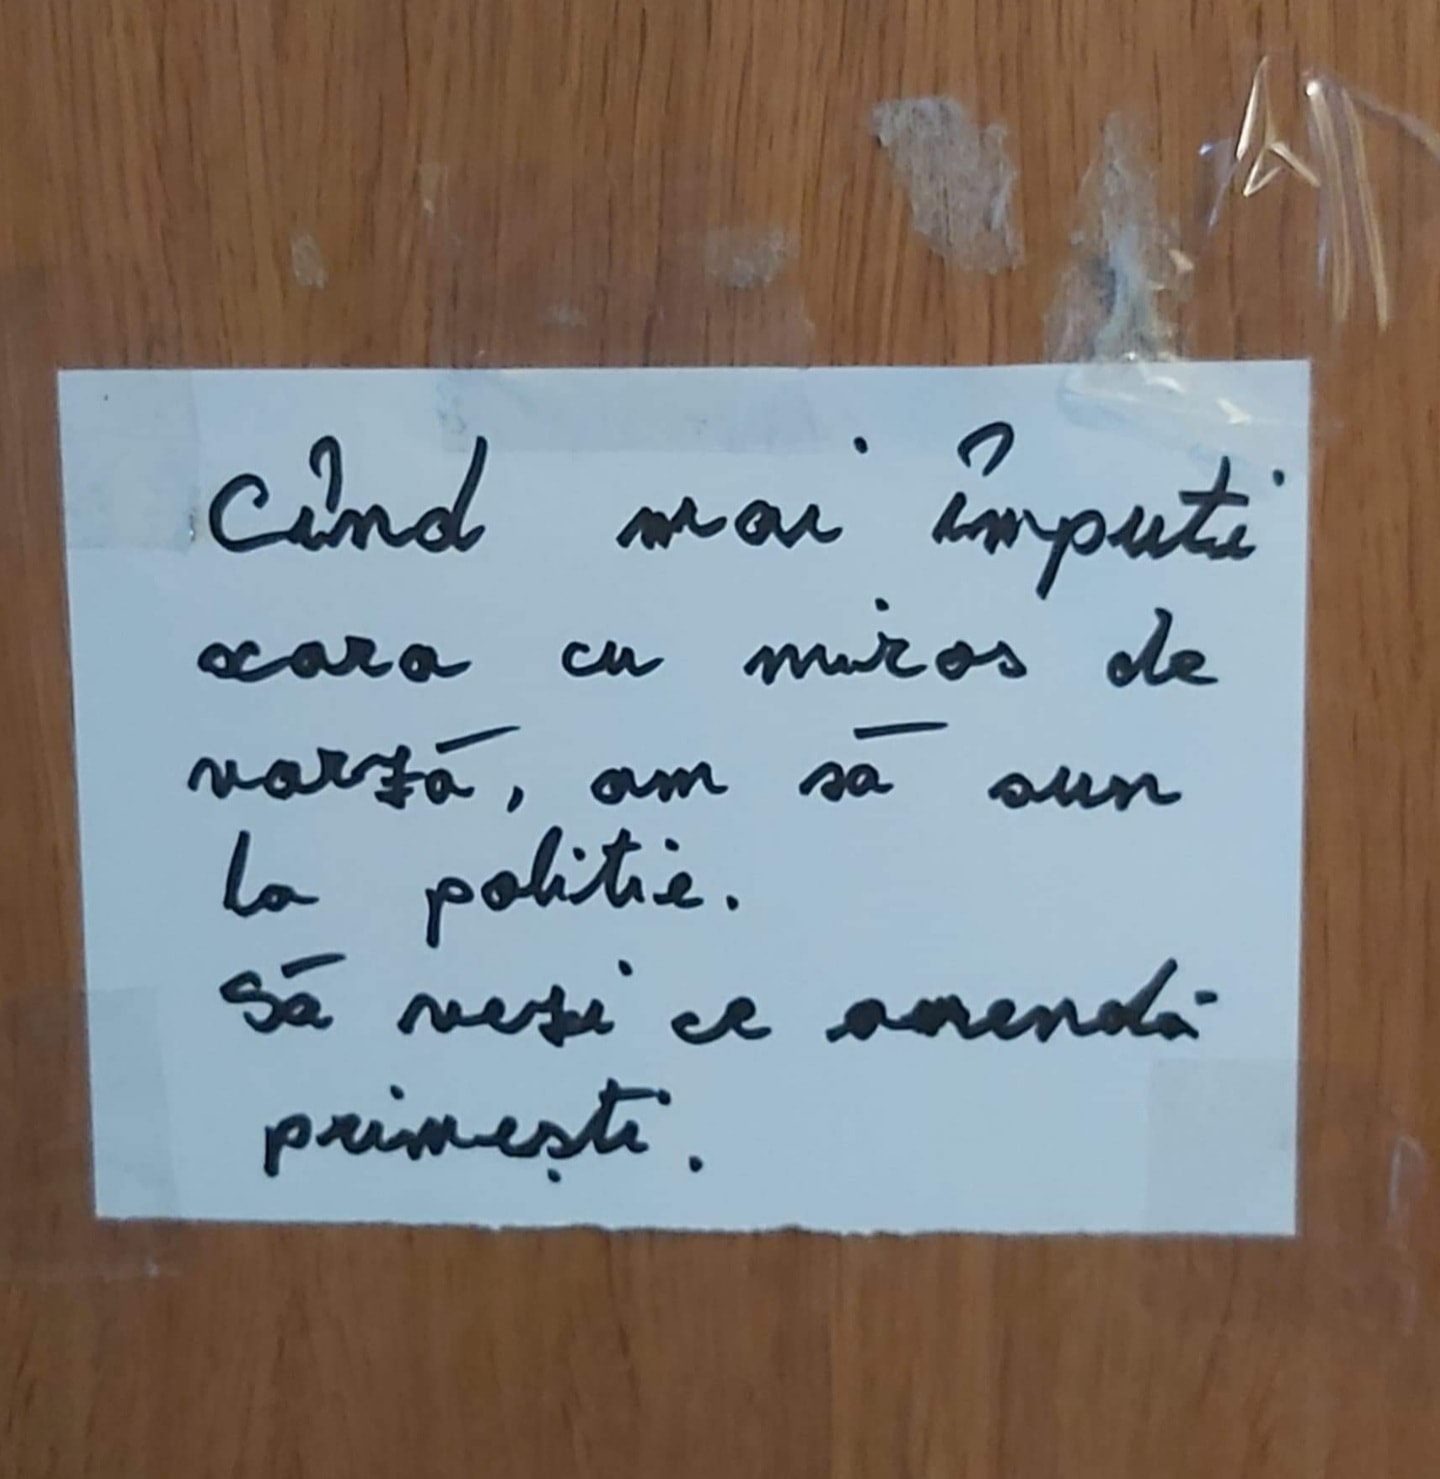 Cînd mai împuti
scara cu miros de
varză, am să sun
la politie.
Să vezi ce amendă
primești.